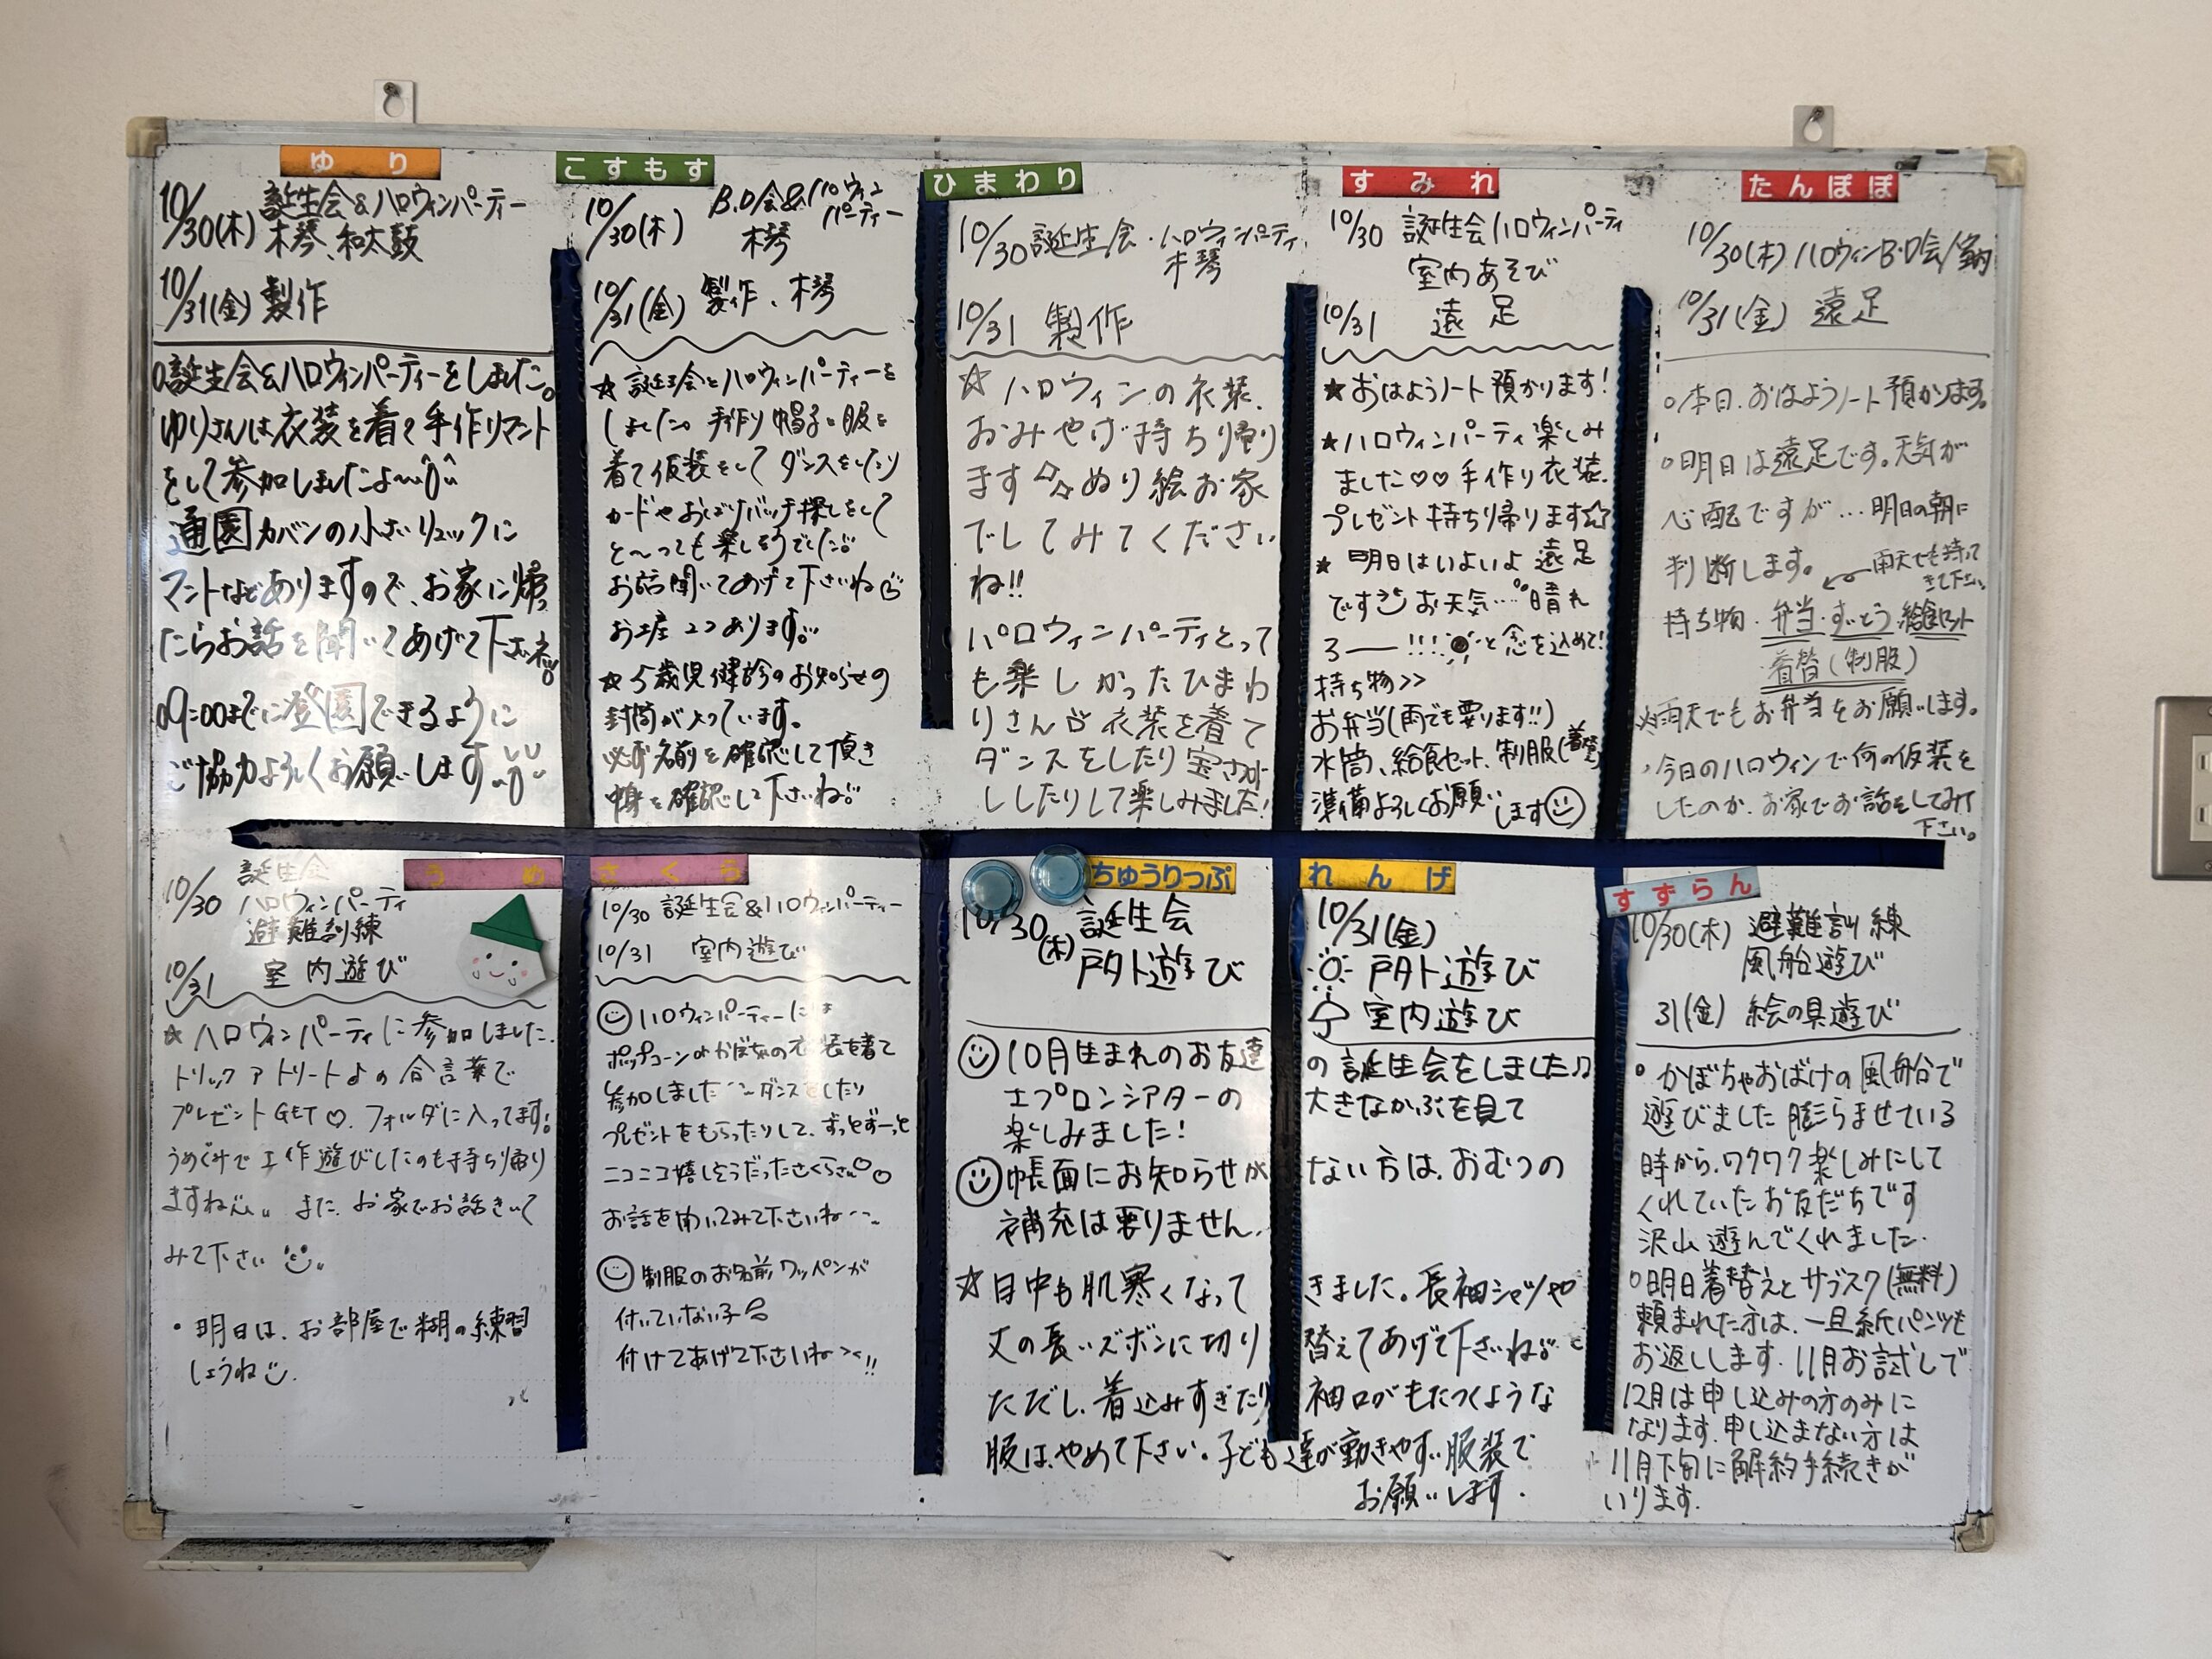 ゆり
10/30(木) 誕生会&ハロウィンパーティー
木琴、和太鼓
10/31(金) 製作
○誕生会&ハロウィンパーティーをしました。
ゆりさんは衣装を着て手作りマント
をして参加しましたよ〜
通園カバンの小さいリュックに
マントなどありますので、お家に帰っ
たらお話を聞いてあげて下さいネ!!
○9:00までに登園できるように
ご協力よろしくお願いします
こすもす
10/30(木) B.D会&ハロウィン
パーティー
木琴
10/31(金) 製作、木琴
☆誕生会とハロウィンパーティーを
しました。手作り帽子と服を
着て仮装をして ダンスをしたり
カードやおばけバッチ探しをして
と〜っても楽しそうでした!!
お話聞いてあげて下さいね
お土産 2つあります!!
☆5歳児健診のお知らせの
封筒が入っています。
必ず名前を確認して頂き
中身を確認して下さいね!!
ひまわり
10/30 誕生会・ハロウィンパーティ
木琴
10/31 製作
☆ハロウィンの衣装、
おみやげ持ち帰り
ます☆☆ぬり絵お家
でしてみてください
ね!!
ハロウィンパーティとって
も楽しかったひまわ
りさん 衣装を着て
ダンスをしたり宝さが
ししたりして楽しみました!
すみれ
10/30 誕生会ハロウィンパーティ
室内あそび
10/31 遠足
★おはようノート預かります!
★ハロウィンパーティ楽しみ
ました♡♡ 手作り衣装、
プレゼント持ち帰ります☆
★明日はいよいよ遠足
です お天気…晴れ
ろ──!!!と念を込めて!
持ち物>>
お弁当(雨でも要ります!!)
水筒、給食セット、制服(着替え)
準備よろしくお願い
します☺
たんぽぽ
10/30(木) ハロウィンB・D会/室内
10/31(金) 遠足
○本日、おはようノート預かります。
○明日は遠足です。天気が
心配ですが…明日の朝に
判断します。 雨天でも持って
きて下さい。
持ち物・弁当・すいとう・給食セット
・着替(制服)
※雨天でもお弁当をお願いします。
・今日のハロウィンで何の仮装を
したのか、お家でお話をしてみて
下さい。
うめ
10/30 誕生会
ハロウィンパーティ
避難訓練
10/31 室内遊び
☆ハロウィンパーティに参加しました。
トリックアトリート♪の合言葉で
プレゼントGET♡. フォルダに入ってます!
うめぐみで工作遊びしたのも持ち帰り
ますね。また、お家でお話きいて
みて下さい
・明日は、お部屋で糊の練習
しようね
さくら
10/30 誕生会&ハロウィンパーティー
10/31 室内遊び
☺ハロウィンパーティーには
ポップコーンやかぼちゃの衣装を着て
参加しました〜ダンスをしたり
プレゼントをもらったりして、ずっとずーっと
ニコニコ嬉しそうだったさくらさん♡♡
お話を聞いてみて下さいね〜
☺制服のお名前ワッペンが
付いていない子は
付けてあげて下さいね〜!!
ちゅうりっぷ
れんげ
10/30(木) 誕生会
戸外遊び
10/31(金)
戸外遊び
室内遊び
☺10月生まれのお友達の誕生会をしました♫
エプロンシアターの大きなかぶを見て
楽しみました!
☺帳面にお知らせがない方は、おむつの
補充は要りません。
☆日中も肌寒くなってきました。長袖シャツや
丈の長いズボンに切り替えてあげて下さいね!!
ただし、着込みすぎたり袖口がもたつくような
服は、やめて下さい。子ども達が動きやすい服装で
お願いします.
すずらん
10/30(木) 避難訓練
風船遊び
31(金) 絵の具遊び
○かぼちゃおばけの風船で
遊びました 膨らませている
時から、ワクワク楽しみにして
くれていたお友だちです
沢山遊んでくれました.
○明日着替えとサブスク(無料)
頼まれた方は、一旦紙パンツも
お返しします. 11月お試しで
12月は申し込みの方のみに
なります. 申し込まない方は
11月下旬に解約手続きが
いります.